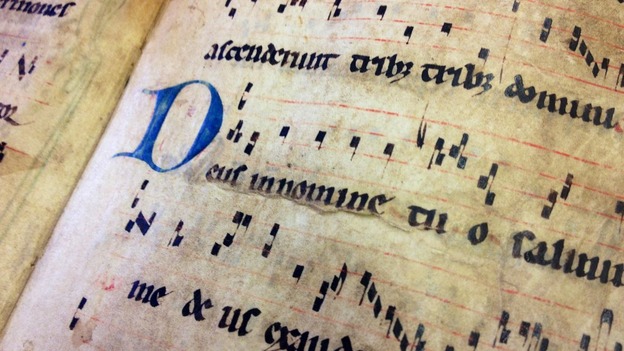 ascenderunt tribꝫ tribꝫ domini
Deus in nomine tu o saluum
me de us